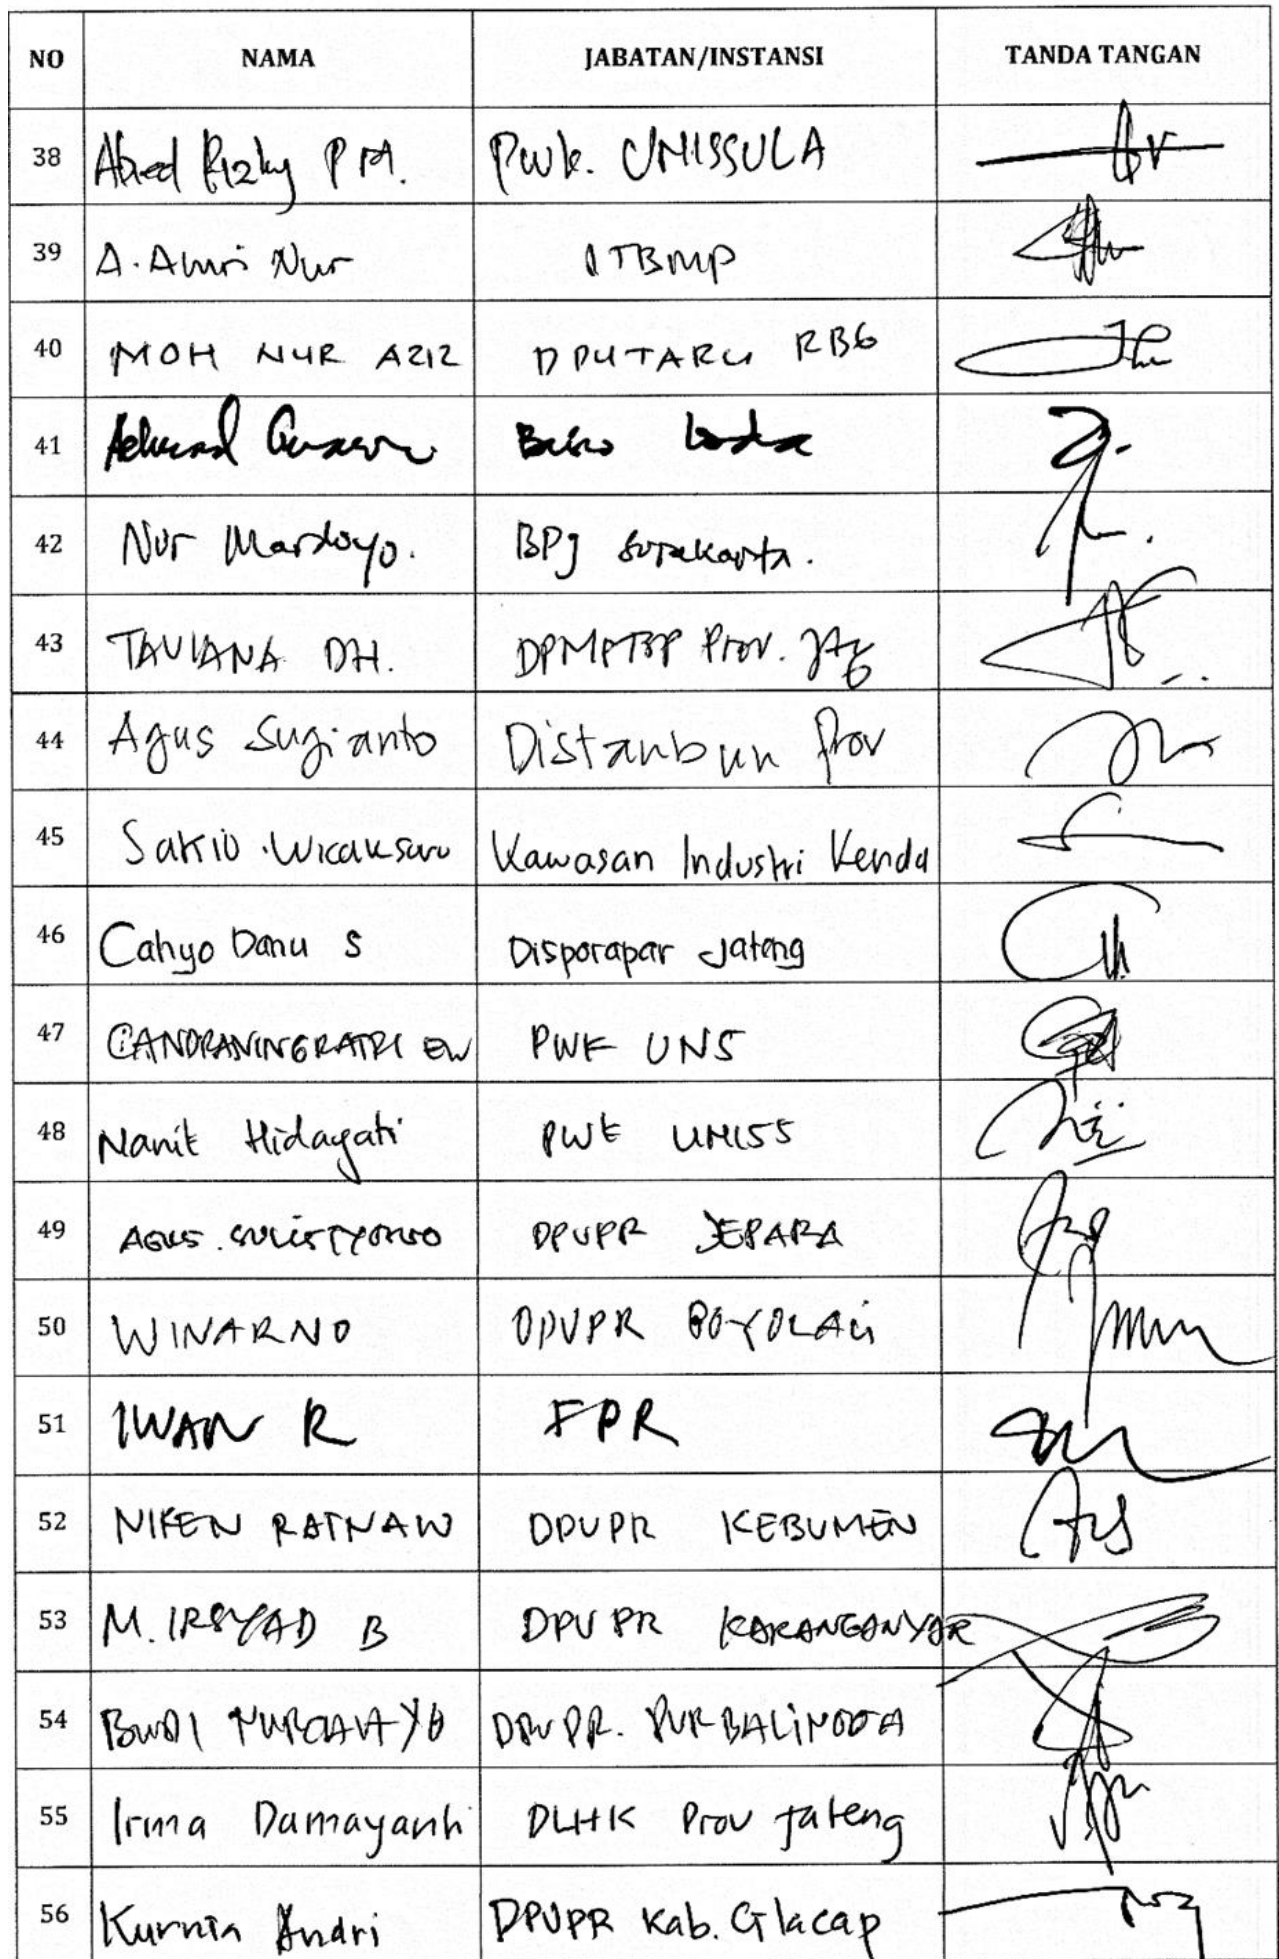 NO NAMA JABATAN/INSTANSI TANDA TANGAN
38 Abed Rizky P M. PWK. UNISSULA
39 A. Amri Nur ITBMP
40 MOH NUR AZIZ DPUTARU RBG
41
42 Nur Mardoyo. BPJ Surakarta.
43 TAVIANA DH. DPMPTSP Prov. Jtg
44 Agus Sugianto Distanbun Prov
45 Sakio Wicaksono Kawasan Industri Kendal
46 Cahyo Danu S Disporapar Jateng
47 CANDRANINGRATRI EW PWK UNS
48 Nanik Hidayati PWK UNISS
49 AGUS. SULISTYONO DPUPR JEPARA
50 WINARNO DPUPR BOYOLALI
51 IWAN R FPR
52 NIKEN RATNAW DPUPR KEBUMEN
53 M. IRSYAD B DPUPR KARANGANYAR
54 BUDI NURCAHYO DPUPR. PURBALINGGA
55 Irma Damayanti DLHK Prov Jateng
56 Kurnia Andri DPUPR Kab. Cilacap